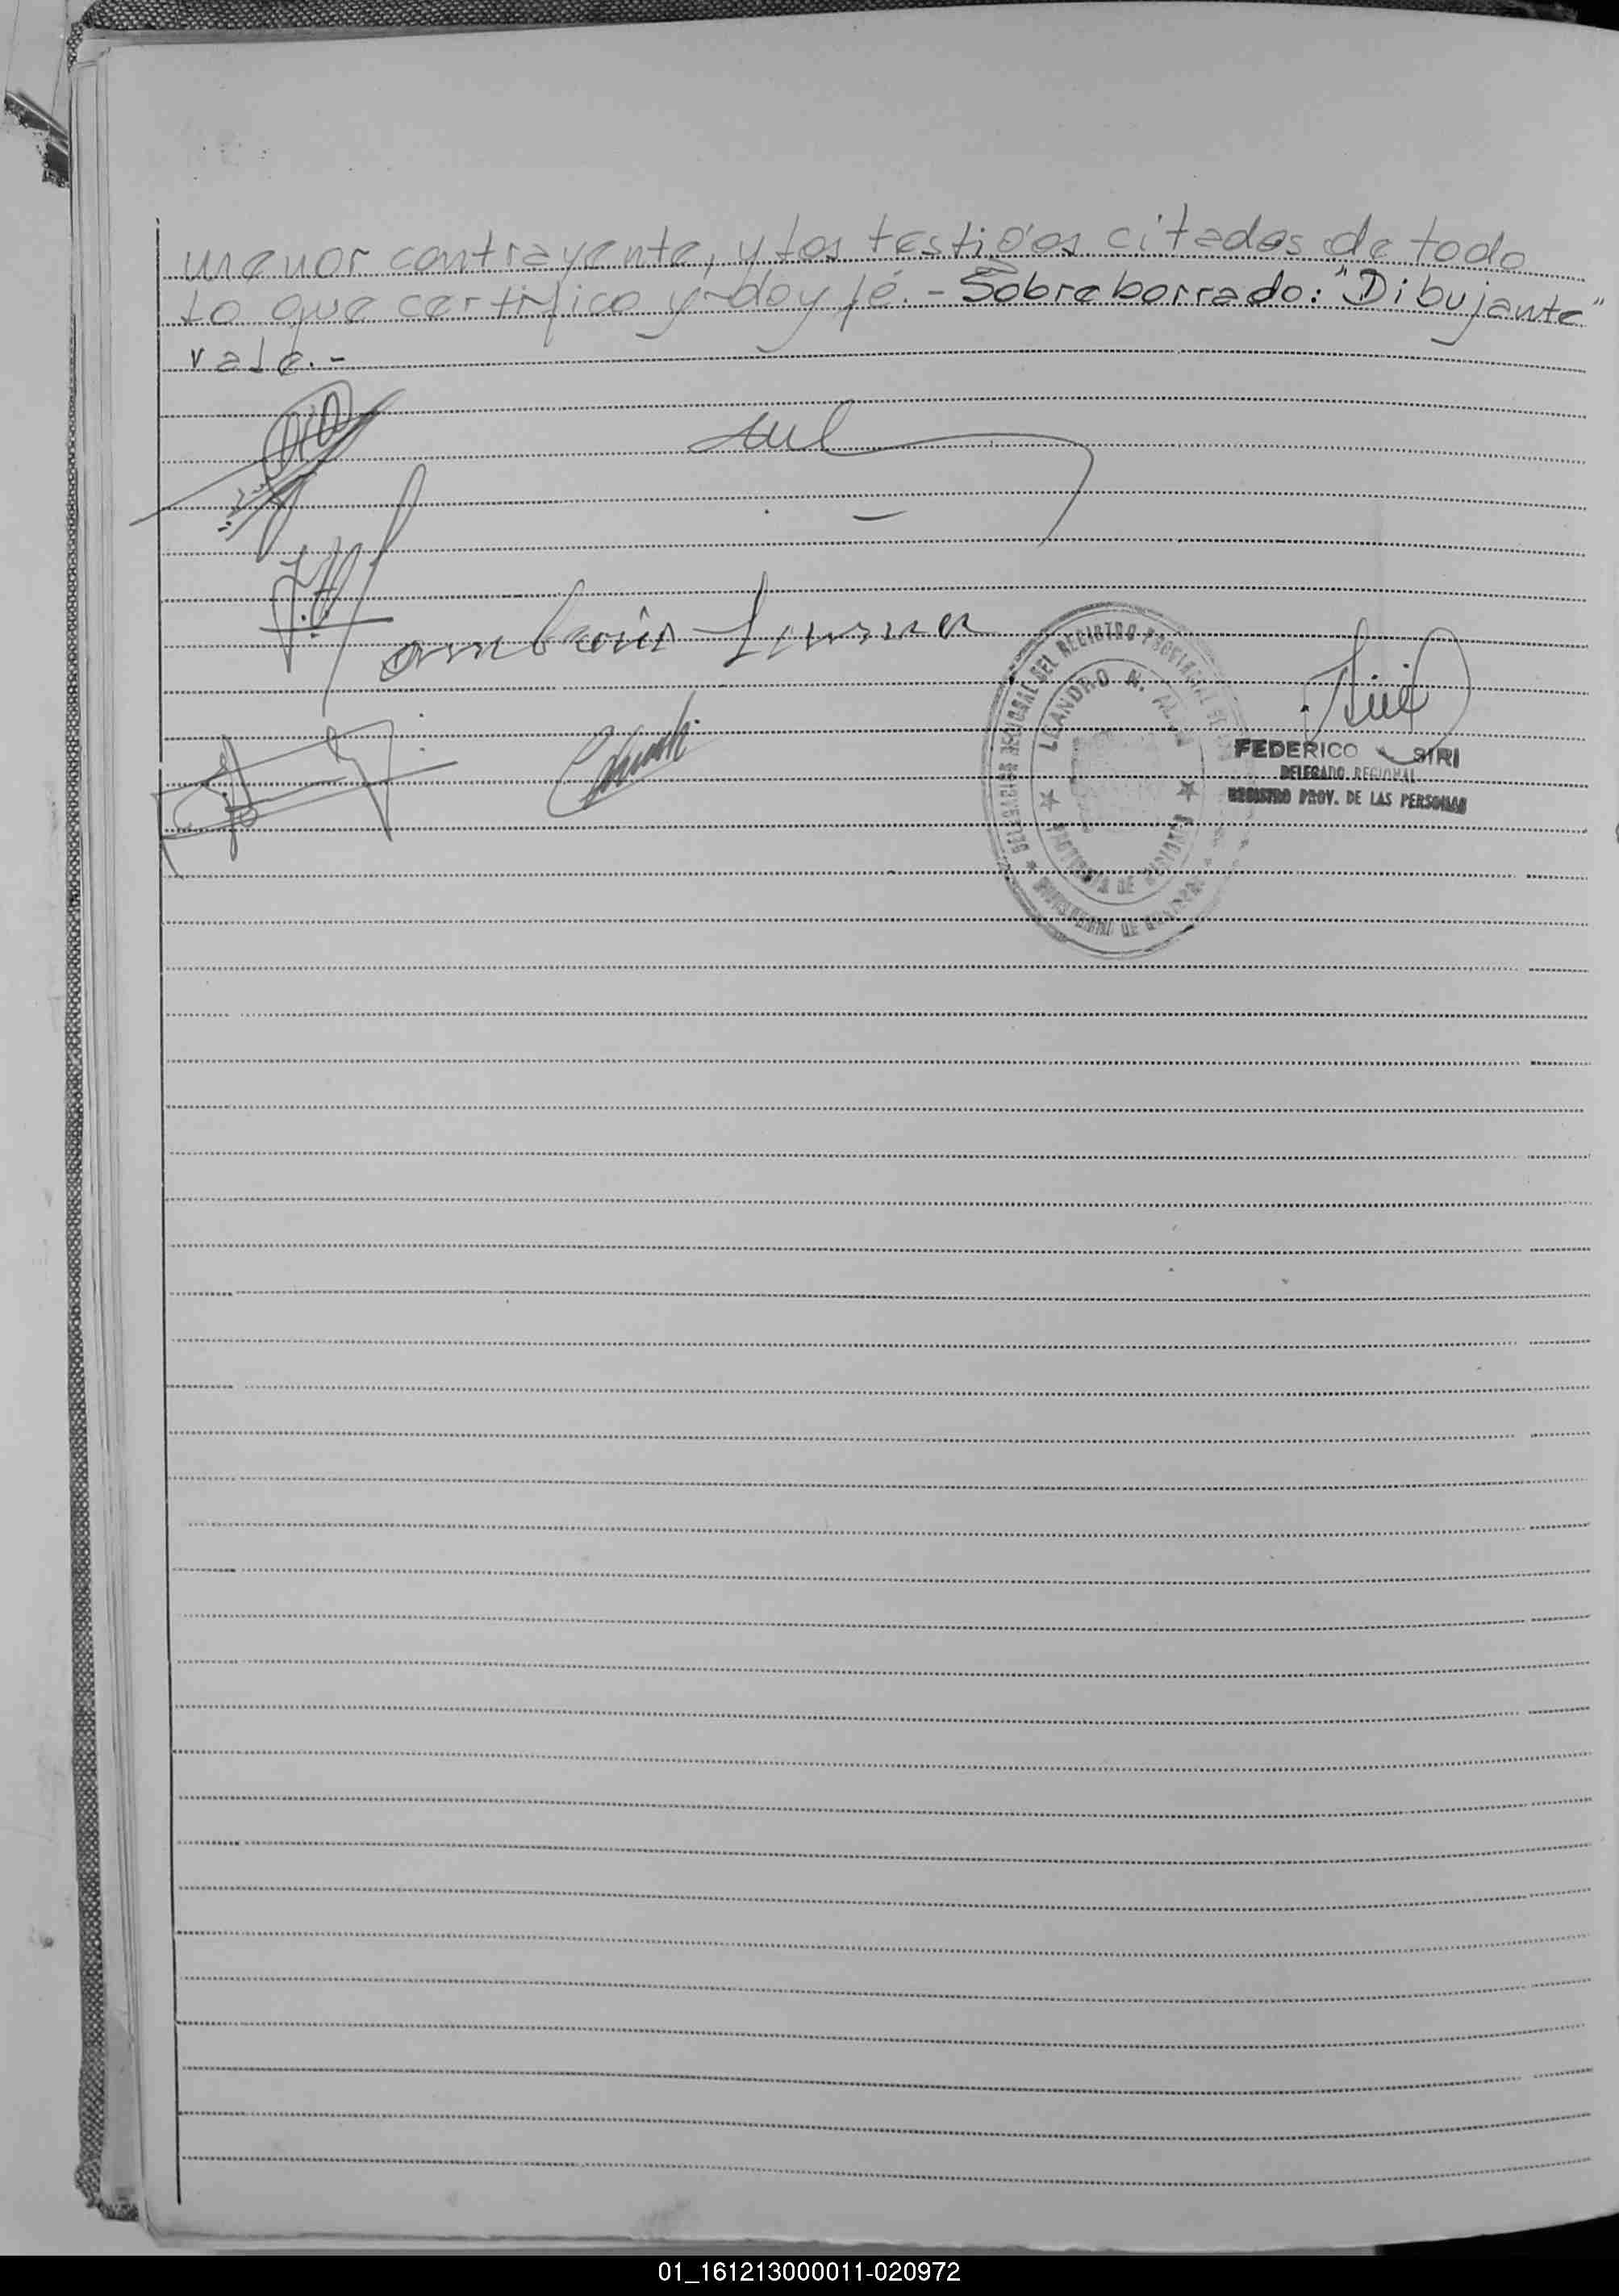 menor contrayente, y los testigos citados de todo
lo que certifico y doy fé. - Sobre borrado: "Dibujante"
vale. -
DELEGACION REGIONAL DEL REGISTRO PROVINCIAL DE
LEANDRO N. ALEM
PROVINCIA DE MISIONES
MINISTERIO DE GOBIERNO
FEDERICO SIRI
DELEGADO REGIONAL
REGISTRO PROV. DE LAS PERSONAS
01_161213000011-020972